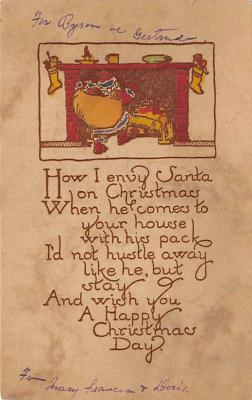 For Byron & Gertrude
How I envy Santa
on Christmas
When he comes to
your house
with his pack
I'd not hustle away
like he, but
stay
And wish you
A Happy
Christmas
Day.
From Mary Frances & Doris.